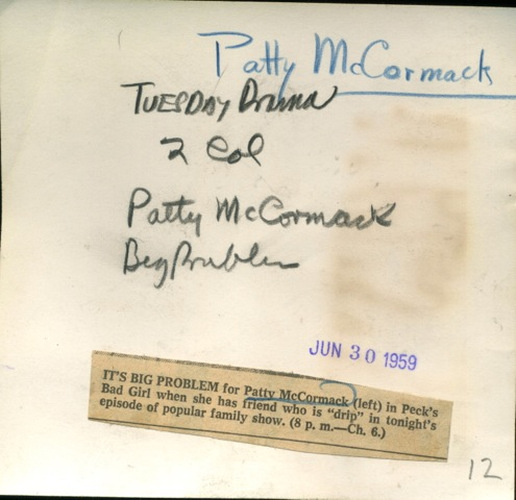 Patty McCormack
TUESDAY Drama
2 Col
Patty McCormack
Big Problem
JUN 30 1959
IT'S BIG PROBLEM for Patty McCormack (left) in Peck's
Bad Girl when she has friend who is "drip" in tonight's
episode of popular family show. (8 p. m.—Ch. 6.)
12